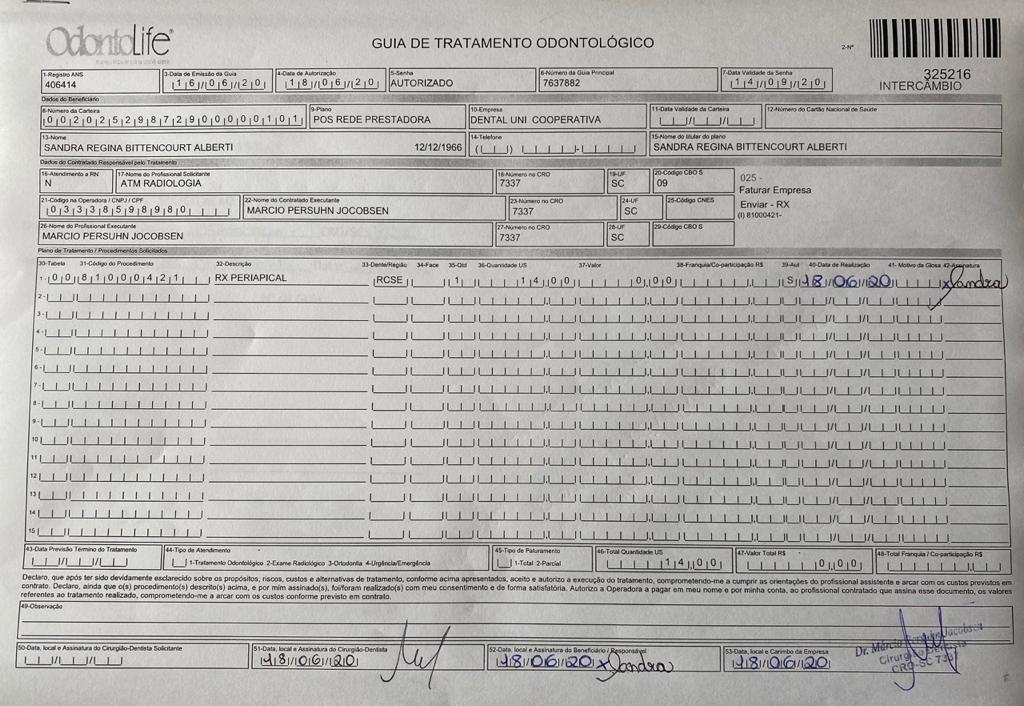 OdontoLife®
GUIA DE TRATAMENTO ODONTOLÓGICO
2-Nº
325216
INTERCÂMBIO
1-Registro ANS
406414
3-Data de Emissão da Guia
16/06/20
4-Data de Autorização
18/06/20
5-Senha
AUTORIZADO
6-Número da Guia Principal
7637882
7-Data Validade da Senha
14/09/20
Dados do Beneficiário
8-Número da Carteira
00202529872900000101
9-Plano
POS REDE PRESTADORA
10-Empresa
DENTAL UNI COOPERATIVA
11-Data Validade da Carteira
12-Número do Cartão Nacional de Saúde
13-Nome
SANDRA REGINA BITTENCOURT ALBERTI 12/12/1966
14-Telefone
15-Nome do titular do plano
SANDRA REGINA BITTENCOURT ALBERTI
Dados do Contratado Responsável pelo Tratamento
16-Atendimento a RN
N
17-Nome do Profissional Solicitante
ATM RADIOLOGIA
18-Número no CRO
7337
19-UF
SC
20-Código CBO S
09
025 -
Faturar Empresa
Enviar - RX
(I) 81000421-
21-Código na Operadora / CNPJ / CPF
03338598980
22-Nome do Contratado Executante
MARCIO PERSUHN JOCOBSEN
23-Número no CRO
7337
24-UF
SC
25-Código CNES
26-Nome do Profissional Executante
MARCIO PERSUHN JOCOBSEN
27-Número no CRO
7337
28-UF
SC
29-Código CBO S
Plano de Tratamento / Procedimentos Solicitados
30-Tabela 31-Código do Procedimento 32-Descrição 33-Dente/Região 34-Face 35-Qtd 36-Quantidade US 37-Valor 38-Franquia/Co-participação R$ 39-Aut 40-Data de Realização 41- Motivo da Glosa 42-Assinatura
1- 00 81000421 RX PERIAPICAL RCSE 1 14,00 0,00 S 18/06/20 x Sandra
2-
3-
4-
5-
6-
7-
8-
9-
10
11
12
13
14
15
43-Data Previsão Término do Tratamento
44-Tipo de Atendimento
1-Tratamento Odontológico 2-Exame Radiológico 3-Ortodontia 4-Urgência/Emergência
45-Tipo de Faturamento
1-Total 2-Parcial
46-Total Quantidade US
14,00
47-Valor Total R$
0,00
48-Total Franquia / Co-participação R$
Declaro, que após ter sido devidamente esclarecido sobre os propósitos, riscos, custos e alternativas de tratamento, conforme acima apresentados, aceito e autorizo a execução do tratamento, comprometendo-me a cumprir as orientações do profissional assistente e arcar com os custos previstos em
contrato. Declaro, ainda que o(s) procedimento(s) descrito(s) acima, e por mim assinado(s), foi/foram realizado(s) com meu consentimento e de forma satisfatória. Autorizo a Operadora a pagar em meu nome e por minha conta, ao profissional contratado que assina esse documento, os valores
referentes ao tratamento realizado, comprometendo-me a arcar com os custos conforme previsto em contrato.
49-Observação
50-Data, local e Assinatura do Cirurgião-Dentista Solicitante
51-Data, local e Assinatura do Cirurgião-Dentista
18/06/20
52-Data, local e Assinatura do Beneficiário / Responsável
18/06/20 x Sandra
53-Data, local e Carimbo da Empresa
18/06/20
Dr. Márcio Persuhn Jacobsen
Cirurgião Dentista
CRO-SC 7337